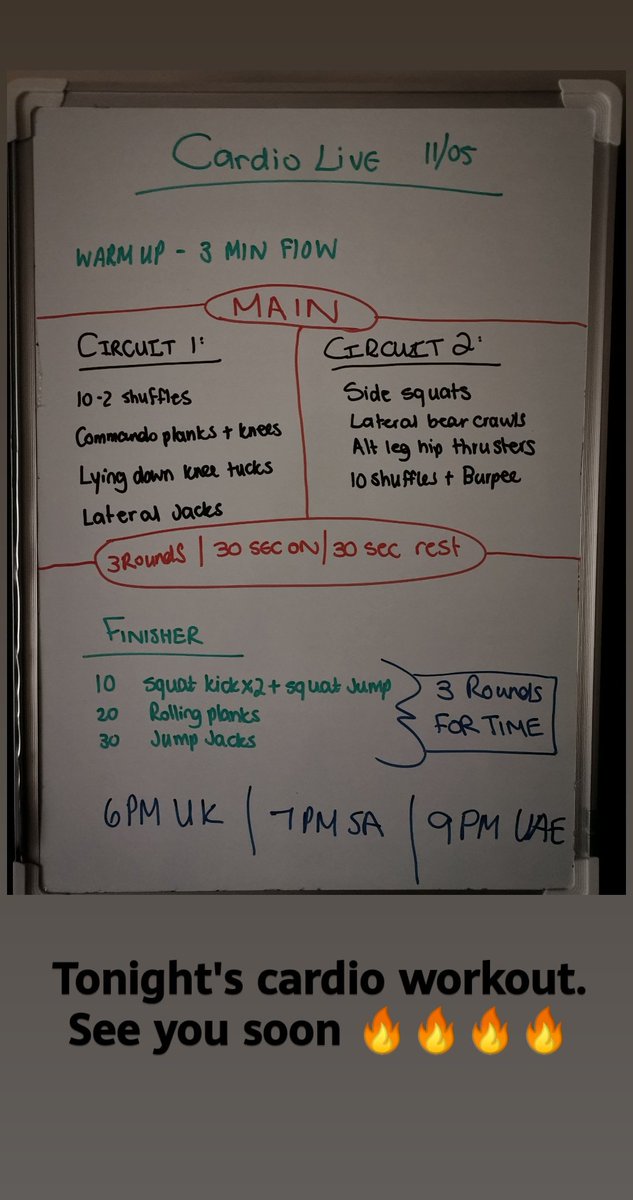 Cardio Live 11/05
WARM UP - 3 MIN FLOW
MAIN
CIRCUIT 1:
10-2 shuffles
Commando planks + knees
Lying down knee tucks
Lateral Jacks
CIRCUIT 2:
Side squats
Lateral bear crawls
Alt leg hip thrusters
10 shuffles + Burpee
3 Rounds | 30 SEC ON | 30 sec rest
FINISHER
10 squat kick x2 + squat Jump
20 Rolling planks
30 Jump Jacks
3 Rounds
FOR TIME
6PM UK | 7PM SA | 9PM UAE
Tonight's cardio workout.
See you soon 🔥🔥🔥🔥